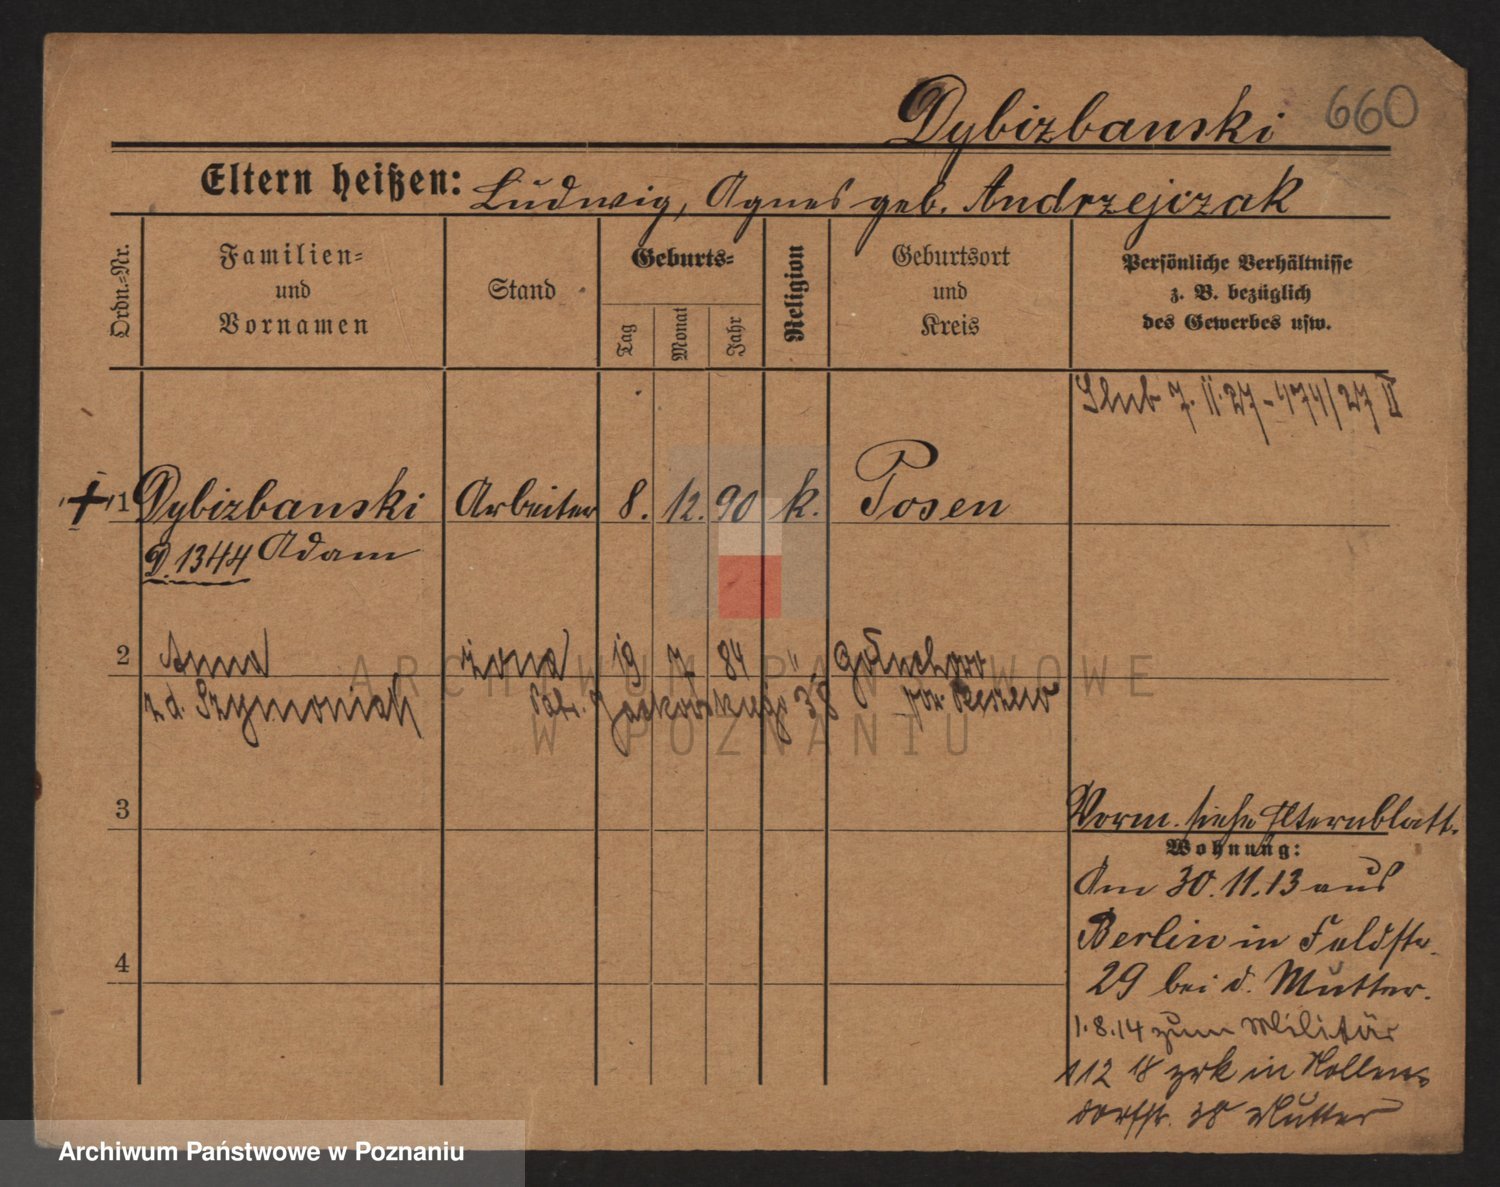 Dybizbanski 660
Eltern heißen: Ludwig, Agnes geb. Andrzejczak
Ordn.-Nr.
Familien-
und
Vornamen
Stand
Geburts-
Tag
Monat
Jahr
Religion
Geburtsort
und
Kreis
Persönliche Verhältnisse
z. B. bezüglich
des Gewerbes usw.
Ślub 7. II. 27 - 474/27 II
1 Dybizbanski Arbeiter 8. 12. 90 k. Posen
D. 1344 Adam
2 Anna żona 19 7 84 " Gołuchowo
z d. Szymoniak Jackowskiego 38
ARCHIWUM PAŃSTWOWE
W POZNANIU
3
Vorm. siehe Elternblatt.
Wohnung:
Am 30.11.13 aus
Berlin in Feldstr.
4
29 bei d. Mutter.
1.8.14 zum Militär
18 zrk in Hollen
dorfstr. 38 Mutter
Archiwum Państwowe w Poznaniu